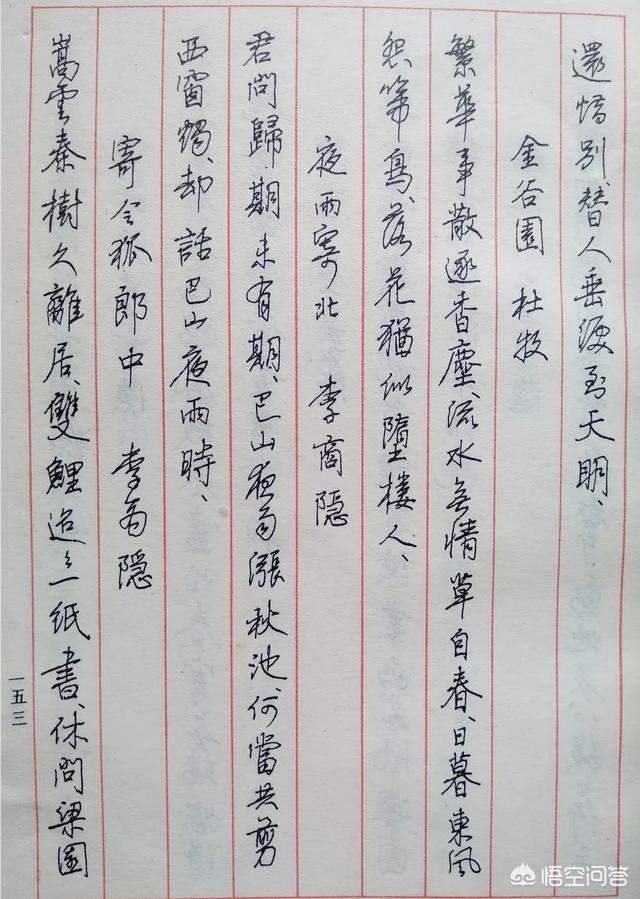 還惜别、替人垂淚到天明、
金谷園 杜牧
繁華事散逐香塵、流水無情草自春、日暮東風
怨啼鳥、落花猶似墮樓人、
夜雨寄北 李商隐
君問歸期未有期、巴山夜雨漲秋池、何當共剪
西窗燭、却話巴山夜雨時、
寄令狐郎中 李商隐
嵩雲秦樹久離居、雙鯉迢々一紙書、休問梁園
一五三
悟空问答